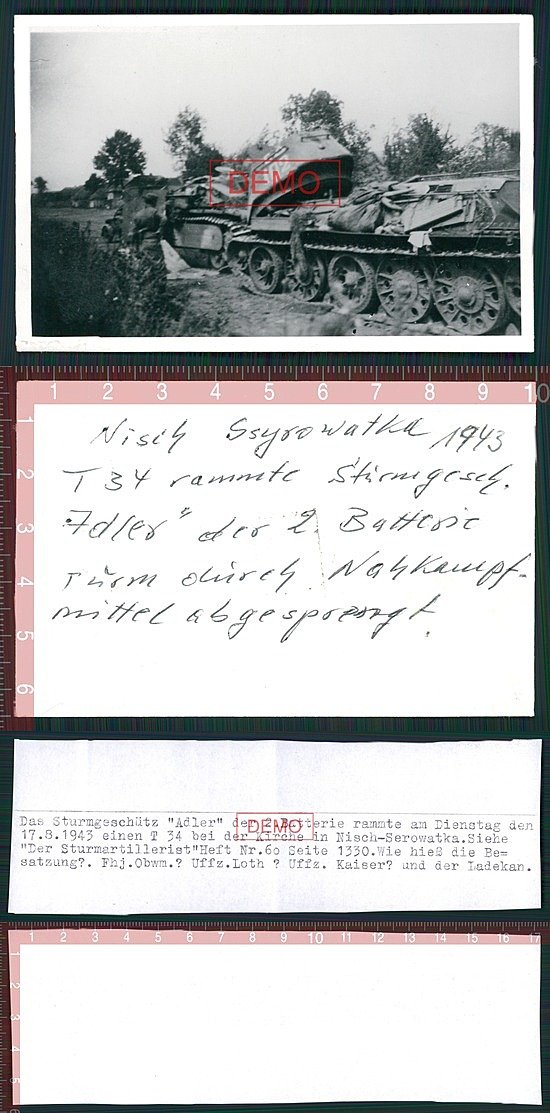 DEMO
1 2 3 4 5 6 7 8 9 10
1
2
3
4
5
6
Nisch Ssyrowatka 1943
T 34 rammte Sturmgesch.
"Adler" der 2. Batterie
Turm durch Nahkampf-
mittel abgesprengt.
Das Sturmgeschütz "Adler" der 2.Batterie rammte am Dienstag den
17.8.1943 einen T 34 bei der Kirche in Nisch-Serowatka.Siehe
"Der Sturmartillerist"Heft Nr.60 Seite 1330.Wie hieß die Be=
satzung?. Fhj.Obwm.? Uffz.Loth ? Uffz. Kaiser? und der Ladekan.
DEMO
1 2 3 4 5 6 7 8 9 10 11 12 13 14 15 16 17
1
2
3
4
5
6